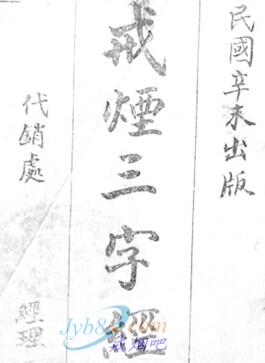 民國辛未出版
戒煙三字經
代銷處
經理
Jyb8
.com
戒烟吧